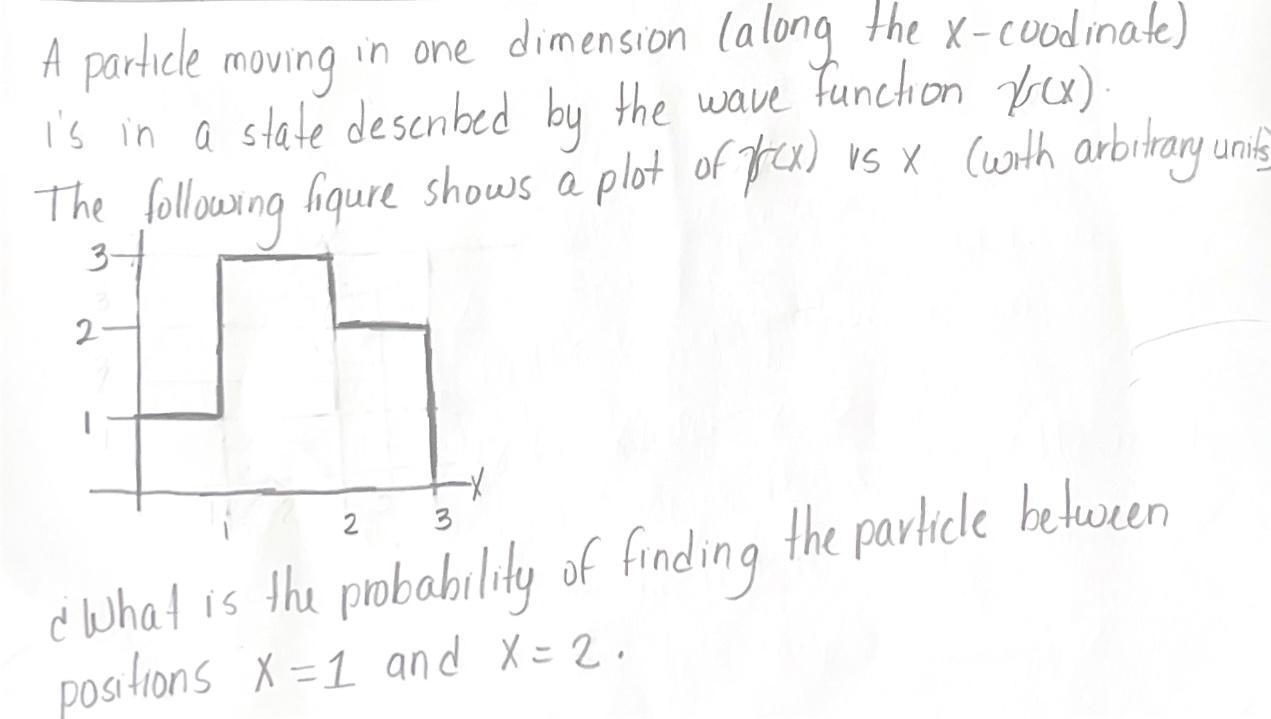 A particle moving in one dimension (along the x-coodinate)
is in a state described by the wave function ψ(x).
The following figure shows a plot of ψ(x) vs x (with arbitrary units
3
2
1
x
1 2 3
¿What is the probability of finding the particle between
positions x=1 and x=2.